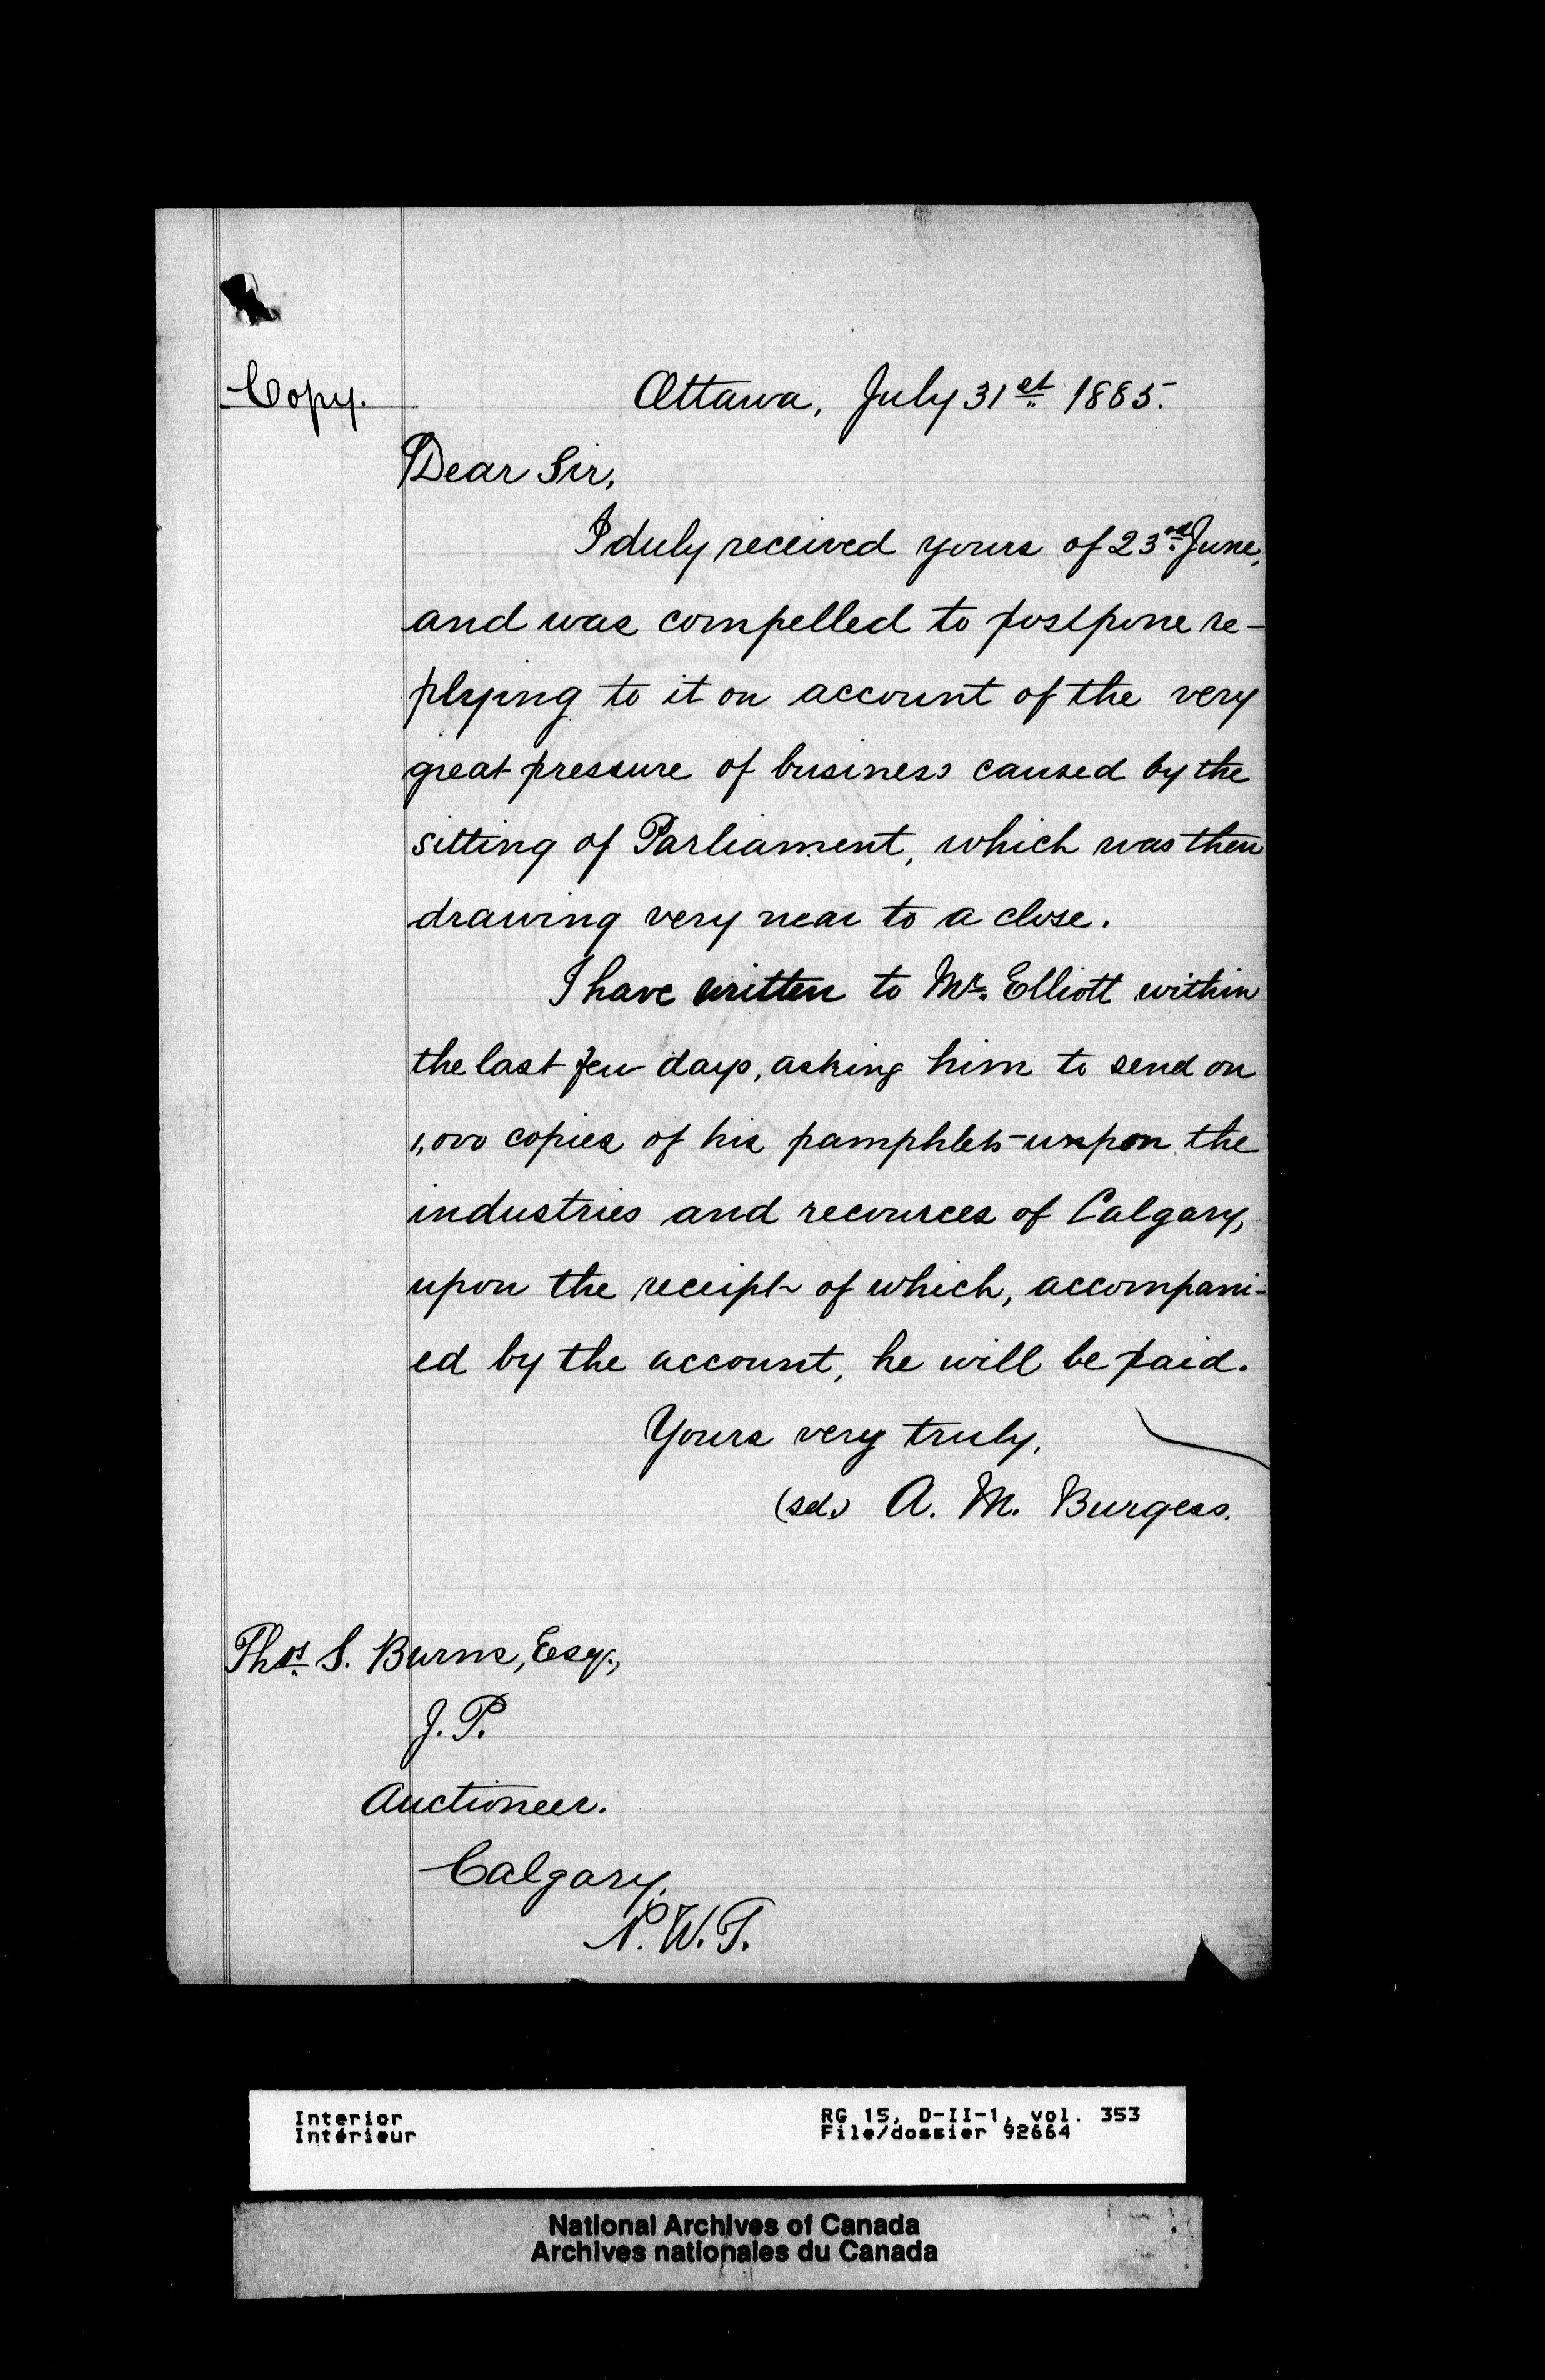 Copy.
Ottawa, July 31st 1885.
Dear Sir,
I duly received yours of 23rd June,
and was compelled to postpone re-
plying to it on account of the very
great pressure of business caused by the
sitting of Parliament, which was then
drawing very near to a close.
I have written to Mr. Elliott within
the last few days, asking him to send on
1,000 copies of his pamphlets upon the
industries and recources of Calgary,
upon the receipt of which, accompani-
ed by the account, he will be paid.
Yours very truly,
(sd.) A. M. Burgess.
Thos. S. Burns, Esq.,
J. P.
Auctioneer.
Calgary,
N. W. T.
Interior
Intérieur
RG 15, D-II-1, vol. 353
File/dossier 92664
National Archives of Canada
Archives nationales du Canada